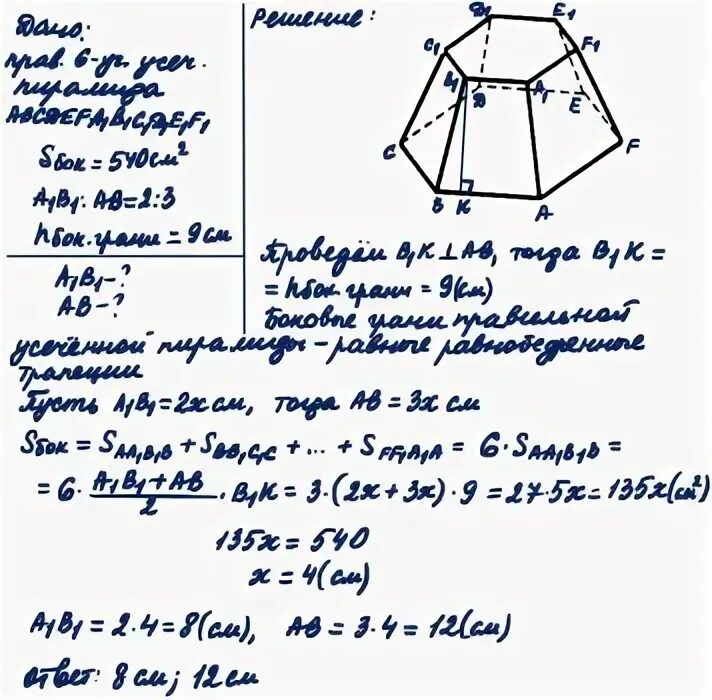 Дано:
прав. 6-уг. усеч.
пирамида
ABCDEFA₁B₁C₁D₁E₁F₁
Sбок = 540 см²
A₁B₁ : AB = 2 : 3
hбок. грани = 9 см
A₁B₁ - ?
AB - ?
Решение:
D₁ E₁
C₁ F₁
B₁ D A₁ E
C F
B K A
Проведём B₁K ⊥ AB, тогда B₁K =
= hбок. грани = 9 (см)
Боковые грани правильной
усечённой пирамиды - равные равнобедренные
трапеции
Пусть A₁B₁ = 2x см, тогда AB = 3x см
Sбок = SAA₁B₁B + SBB₁C₁C + ... + SFF₁A₁A = 6 · SAA₁B₁B =
= 6 · (A₁B₁ + AB)/2 · B₁K = 3 · (2x + 3x) · 9 = 27 · 5x = 135x (см²)
135x = 540
x = 4 (см)
A₁B₁ = 2 · 4 = 8 (см), AB = 3 · 4 = 12 (см)
ответ: 8 см; 12 см